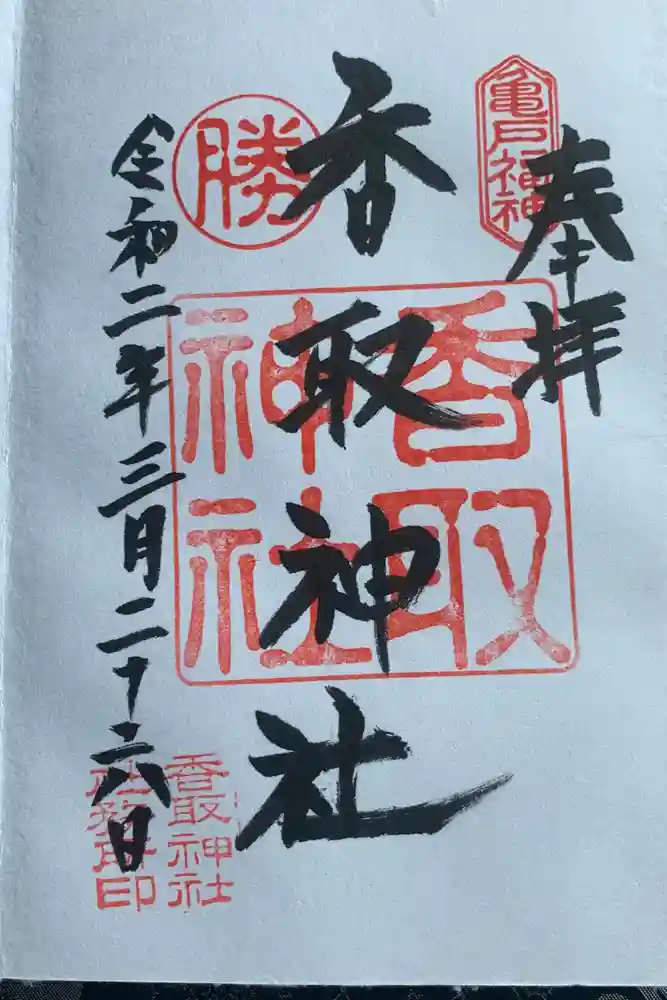 亀戸福神
奉拝
香取神社
香取
神社
勝
令和二年三月二十六日
香取神社
社務所印